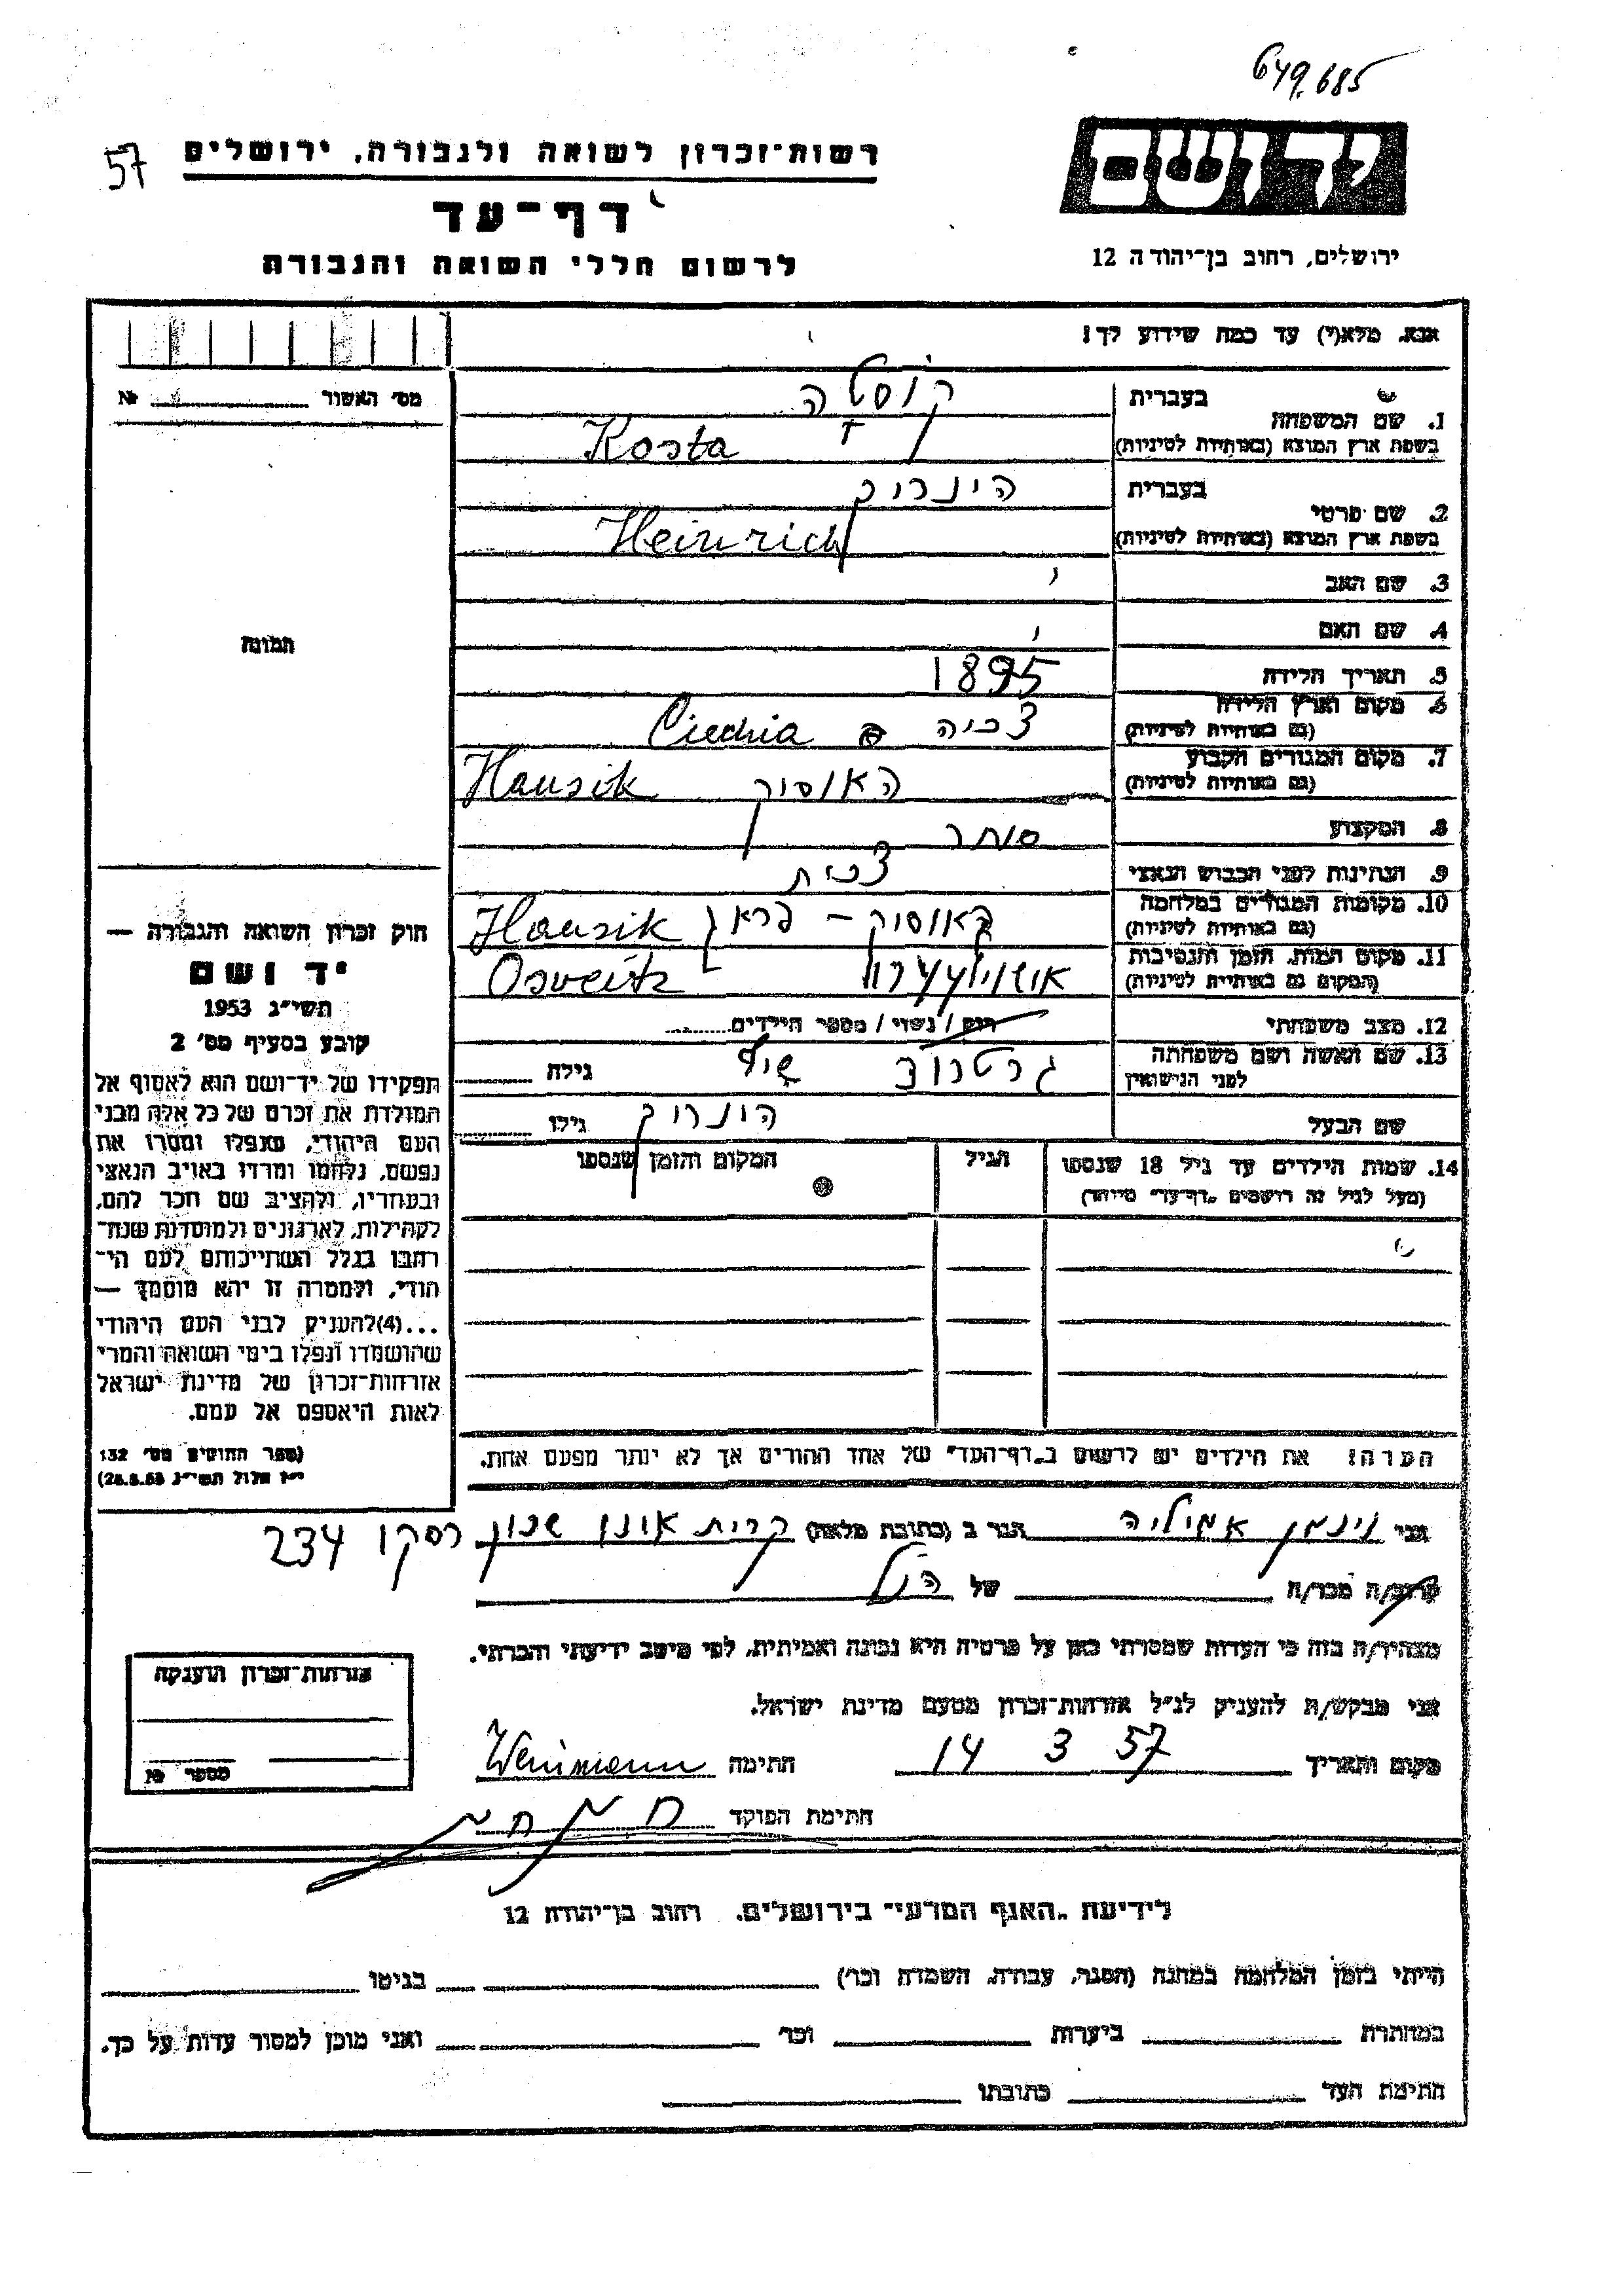 649.685
57
רשות־זכרון לשואה ולגבורה, ירושלים
דף־עד
לרשום חללי השואה והגבורה
יד ושם
ירושלים, רחוב בן־יהודה 12
אנא, מלא(י) עד כמה שידוע לך!
מס' האשור № 
1. שם המשפחה
בעברית קוסטה
בשפת ארץ המוצא (באותיות לטיניות) Kosta
2. שם פרטי
בעברית הינריך
בשפת ארץ המוצא (באותיות לטיניות) Heinrich
3. שם האב
4. שם האם
5. תאריך הלידה 1895
6. מקום וארץ הלידה צכיה Ciechia
(גם באותיות לטיניות)
7. מקום המגורים הקבוע האוסיק Hausik
(גם באותיות לטיניות)
8. המקצוע סוחר
9. הנתינות לפני הכבוש הנאצי צכית
10. מקומות המגורים במלחמה האוסיק - פראג Hausik
(גם באותיות לטיניות)
11. מקום המות, הזמן והנסיבות Osveitz
(המקום גם באותיות לטיניות)
12. מצב משפחתי רווק / נשוי / מספר הילדים
13. שם האשה ושם משפחתה גרטרוד גילה
לפני הנישואין
שם הבעל הינריך גילו
14. שמות הילדים עד גיל 18 שנספו הגיל המקום והזמן שנספו
(מעל לגיל זה רושמים „דף־עד" מיוחד)
הערה! את הילדים יש לרשום ב„דף־העד" של אחד ההורים אך לא יותר מפעם אחת.
התמונה
חוק זכרון השואה והגבורה —
יד ושם
תשי״ג 1953
קובע בסעיף מס' 2
תפקידו של יד־ושם הוא לאסוף אל
המולדת את זכרם של כל אלה מבני
העם היהודי, שנפלו ומסרו את
נפשם, נלחמו ומרדו באויב הנאצי
ובעוזריו, ולהציב שם וזכר להם,
לקהילות, לארגונים ולמוסדות שנח־
רבו בגלל השתייכותם לעם הי־
הודי, ולמטרה זו יהא מוסמך —
...(4)להעניק לבני העם היהודי
שהושמדו ונפלו בימי השואה והמרי
אזרחות־זכרון של מדינת ישראל
לאות היאספם אל עמם.
(ספר החוקים מס' 132
י״ז אלול תשי״ג 28.8.53)
אני וינמן אמיליה הגר ב (כתובת מלאה) קרית אונו שכון רסקו 234
קרוב/ה מכר/ה של הנ״ל
מצהיר/ה בזה כי העדות שמסרתי כאן על פרטיה היא נכונה ואמיתית, לפי מיטב ידיעתי והכרתי.
אני מבקש/ת להעניק לנ״ל אזרחות־זכרון מטעם מדינת ישראל.
מקום ותאריך 14 3 57 חתימה Weinmann
חתימת הפוקד
אזרחות־זכרון הוענקה
מספר №
לידיעת „האגף המדעי" בירושלים, רחוב בן־יהודה 12
הייתי בזמן המלחמה במחנה (הסגר, עבודה, השמדה וכו') בגיטו
במחתרת ביערות וכו' ואני מוכן למסור עדות על כך.
חתימת העד כתובתו